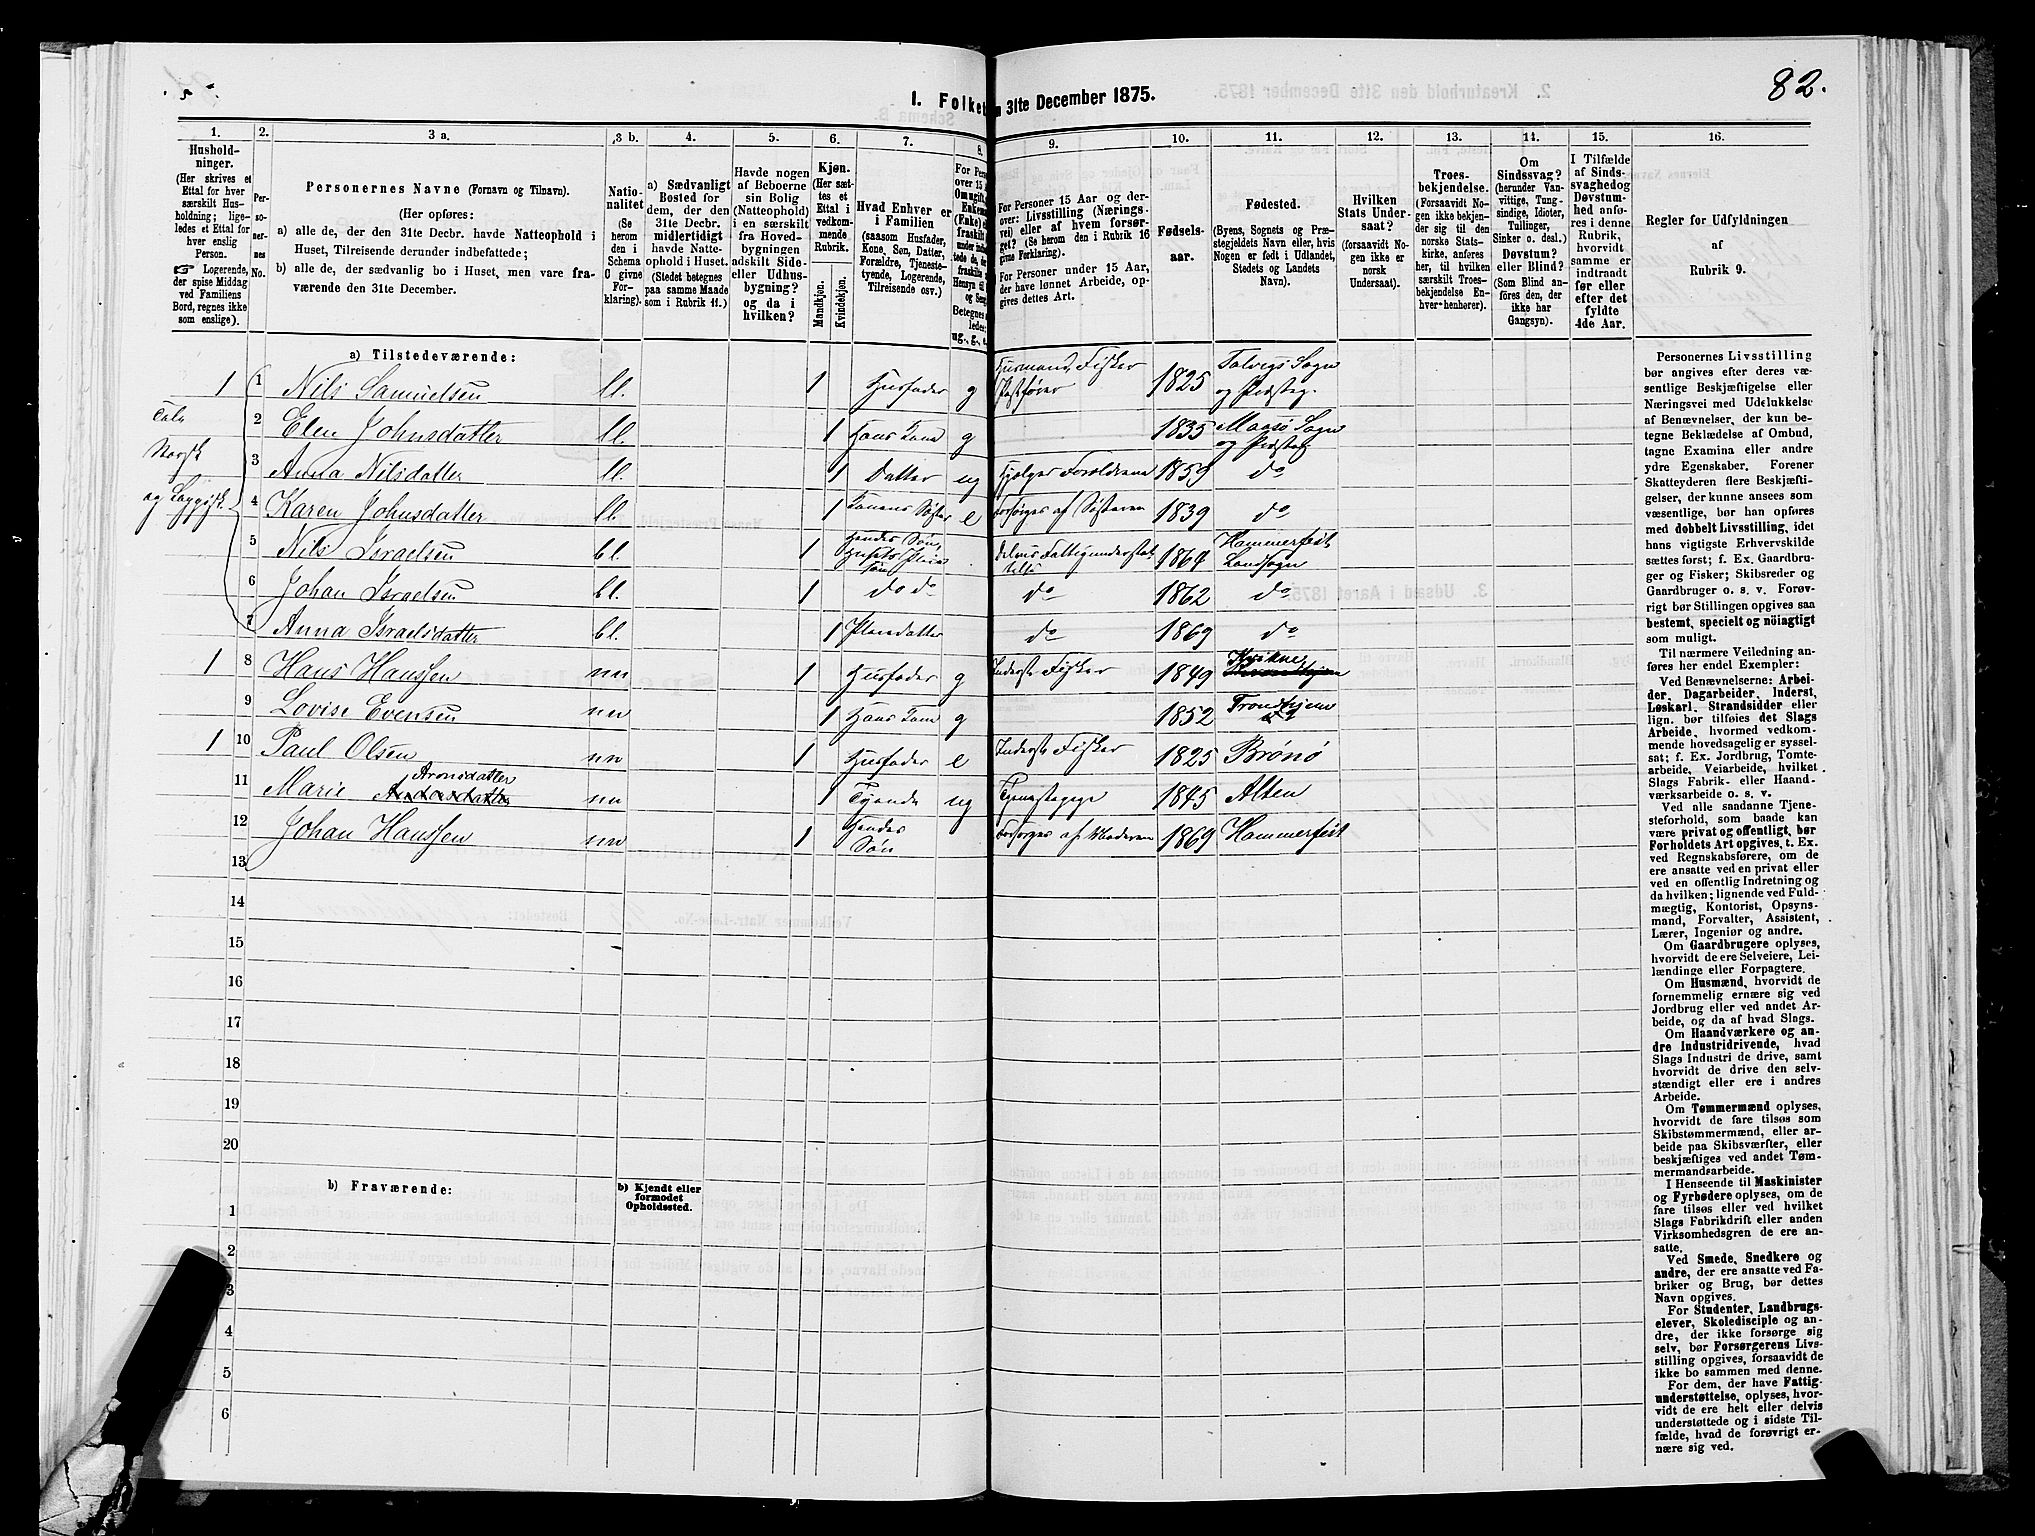 82.
I. Folket
n 31te December 1875.
1.
2.
3 a.
3 b.
4.
5.
6.
7.
8.
9.
10.
11.
12.
13.
14.
15.
16.
Hushold-
ninger.
(Her skrives et
Ettal for hver
særskilt Hus-
holdning; lige-
ledes et Ettal for
hver enslig
Person.
☞ Logerende,
der spise Middag
ved Familiens
Bord, regnes ikke
som enslige).
Per-
so-
ner-
nes
No.
Personernes Navne (Fornavn og Tilnavn).
(Her opføres:
a) alle de, der den 31te Decbr. havde Natteophold i
Huset, Tilreisende derunder indbefattede;
b) alle de, der sædvanlig bo i Huset, men vare fra-
værende den 31te December.
Natio-
nalitet
(Se
herom
den i
Schema
C givne
For-
klaring).
a) Sædvanligt
Bosted for
dem, der den
31te Decbr.
midlertidigt
havde Natte-
ophold i Huset.
(Stedet betegnes
paa samme Maade
som i Rubrik 11.)
Havde nogen
af Beboerne
sin Bolig
(Natteophold)
i en særskilt
fra Hoved-
bygningen
adskilt Side-
eller Udhus-
bygning?
og da i
hvilken?
Kjøn.
(Her sæt-
tes et
Ettal i
vedkom-
mende
Rubrik.
Mandkjøn.
Kvindekjøn.
Hvad Enhver er
i Familien
(saasom Husfader,
Kone, Søn, Datter,
Forældre, Tjeneste-
tyende, Logerende,
Tilreisende osv.)
For Personer 15 Aar og der-
over: Livsstilling (Nærings-
vei) eller af hvem forsør-
get? (Se herom den i Rubrik 16
givne Forklaring).
For Personer under 15 Aar,
der have lønnet Arbeide, op-
gives dettes Art.
Fødsels-
aar.
Fødested.
(Byens, Sognets og Præ-
stegjeldets Navn eller, hvis
Nogen er født i Udlandet,
Stedets og Landets
Navn).
Hvilken
Stats Under-
saat?
(forsaavidt No-
gen ikke er
norsk
Undersaat).
Troes-
bekjendelse.
(Forsaavidt No-
gen ikke bekjen-
der sig til den
norske Stats-
kirke, anføres
her, til hvilken
særskilt Troes-
bekjendelse En-
hver henhører).
Om
Sindssvag?
(herunder Van-
vittige, Tung-
sindige, Idioter,
Tullinger,
Sinker o. desl.)
Døvstum?
eller Blind?
(Som Blind an-
føres den, der
ikke har
Gangsyn).
I Tilfælde
af Sinds-
svaghed og
Døvstum-
hed anfø-
res i denne
Rubrik,
hvorvidt
samme er
indtraadt
før eller
efter det
fyldte
4de Aar.
Regler for Udfyldningen
af
Rubrik 9.
a) Tilstedeværende:
1 1 Nils Samuelsen ll. 1 Husfader g Husmand, Fisker Postfører 1825 Talvigs Sogn og Præsteg.
Tale
2 Elen Johnsdatter ll. 1 Hans Kone g 1835 Maasø Sogn og Præsteg
Norsk
3 Anna Nilsdatter ll. 1 Datter ug hjælper Forældrene 1859 do
og Lappisk
4 Karen Johnsdatter ll. 1 Konens Søster e forsørges af Søsteren 1839 do
5 Nils Israelsen bl. 1 Hendes Søn, Husets Pleiesøn 1864 Hammerfest Landsogn
6 Johan Israelsen bl. 1 do do do 1862 do
7 Anna Israelsdatter bl. 1 Pleiedatter do 1869 do
1 8 Hans Hanssen nn 1 Husfader g Inderst, Fisker 1849 Kvikne
9 Lovise Evensen nn 1 Hans Kone g 1852 Trondhjem
1 10 Paul Olsen nn 1 Husfader e Inderst, Fisker 1825 Brønø
11 Marie Aronsdatter nn 1 Tyende ug Tjenestepige 1845 Alten
12 Johan Hanssen nn 1 Hendes Søn forsørges af Moderen 1869 Hammerfest
13
14
15
16
17
18
19
20
b) Fraværende:
b) Kjendt eller
formodet
Opholdssted.
1
2
3
4
5
6
Personernes Livsstilling
bør angives efter deres væ-
sentlige Beskjæftigelse eller
Næringsvei med Udelukkelse
af Benævnelser, der kun be-
tegne Beklædelse af Ombud,
tagne Examina eller andre
ydre Egenskaber. Forener
Skatteyderen flere Beskjæfti-
gelser, der kunne ansees som
væsentlige, bør han opføres
med dobbelt Livsstilling, idet
hans vigtigste Erhvervskilde
sættes først; f. Ex. Gaardbru-
ger og Fisker; Skibsreder og
Gaardbruger o. s. v. Forøv-
rigt bør Stillingen opgives saa
bestemt, specielt og nöiagtigt
som muligt.
Til nærmere Veiledning an-
føres her endel Exempler:
Ved Benævnelserne: Arbei-
der, Dagarbeider, Inderst,
Løskarl, Strandsidder eller
lign. bør tilføies det Slags
Arbeide, hvormed vedkom-
mende hovedsagelig er syssel-
sat; f. Ex. Jordbrug, Tomte-
arbeide, Veiarbeide, hvilket
Slags Fabrik- eller Haand-
værksarbeide o. s. v.
Ved alle saadanne Tjene-
steforhold, som baade kan
være privat og offentligt, bør
Forholdets Art opgives, t. Ex.
ved Regnskabsførere, om de
ere ansatte ved en privat eller
ved en offentlig Indretning og
da hvilken; lignende ved Fuld-
mægtig, Kontorist, Opsyns-
mand, Forvalter, Assistent,
Lærer, Ingeniør og andre.
Om Gaardbrugere oplyses,
hvorvidt de ere Selveiere, Lei-
lændinge eller Forpagtere.
Om Husmænd, hvorvidt de
fornemmelig ernære sig ved
Jordbrug eller ved andet Ar-
beide, og da af hvad Slags.
Om Haandværkere og an-
dre Industridrivende, hvad
Slags Industri de drive, samt
hvorvidt de drive den selv-
stændigt eller ere i andres
Arbeide.
Om Tømmermænd oplyses,
hvorvidt de fare tilsøs som
Skibstømmermænd, eller ar-
beide paa Skibsværfter, eller
beskjæftiges ved andet Tøm-
mermandsarbeide.
I Henseende til Maskinister
og Fyrbødere oplyses, om de
fare tilsøs eller ved hvilket
Slags Fabrikdrift eller anden
Virksomhedsgren de ere an-
satte.
Ved Smede, Snedkere og
andre, der ere ansatte ved Fa-
briker og Brug, bør dettes
Navn opgives.
For Studenter, Landbrugs-
elever, Skoledisciple og an-
dre, der ikke forsørge sig
selv, bør Forsørgerens Livs-
stilling opgives, forsaavidt de
ikke bo sammen med denne.
For dem, der have Fattig-
understøttelse, oplyses, hvor-
vidt de ere helt eller delvis
understøttede og i sidste Til-
fælde, hvad de forøvrigt er-
nære sig ved.